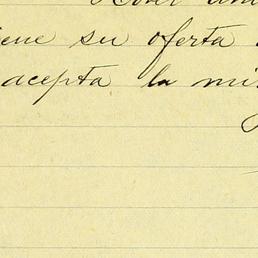 ene su oferta
acepta la mis